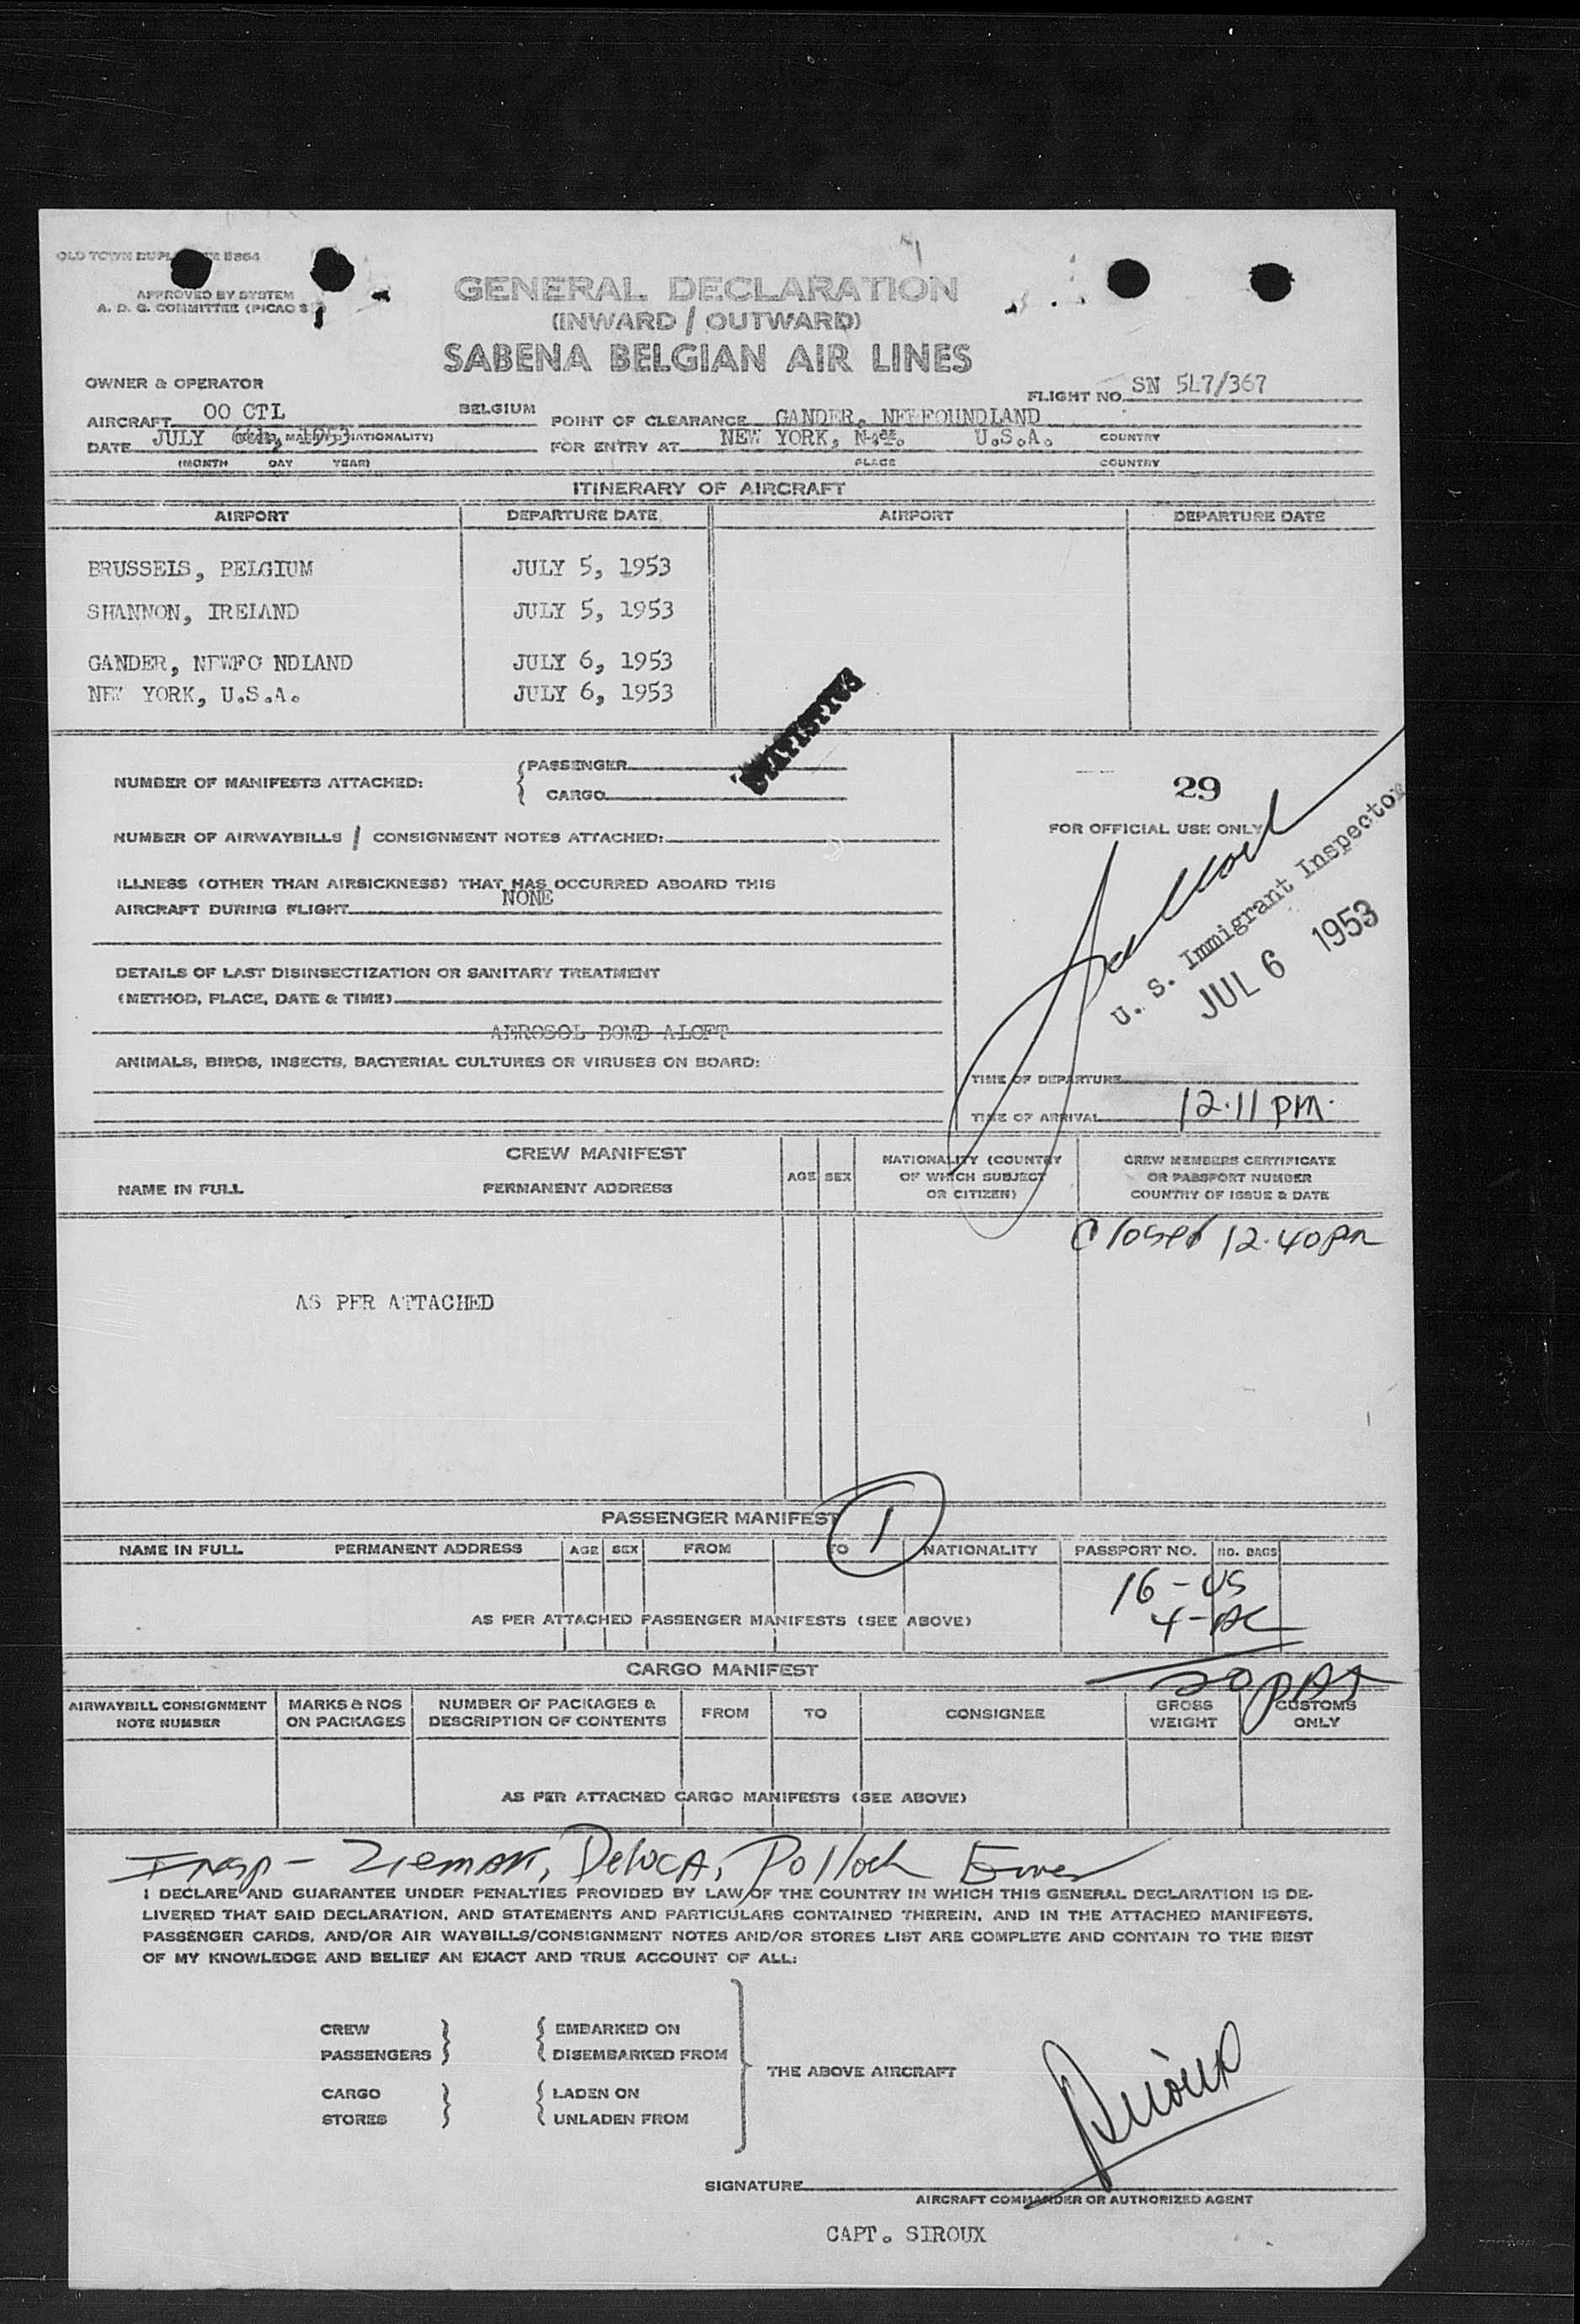 GENERAL DECLARATION
(INWARD / OUTWARD)
SABENA BELGIAN AIR LINES
OLD TOWN
APPROVED BY SYSTEM
A. D. G. COMMITTEE (PICAO
OWNER & OPERATOR
FLIGHT NO. SN 5L7/367
AIRCRAFT OO CTL BELGIUM
POINT OF CLEARANCE GANDER, NEWFOUNDLAND
NATIONALITY)
COUNTRY
DATE JULY 6th, 1953
FOR ENTRY AT NEW YORK, N.Y. U.S.A.
(MONTH DAY YEAR)
PLACE COUNTRY
ITINERARY OF AIRCRAFT
AIRPORT DEPARTURE DATE AIRPORT DEPARTURE DATE
BRUSSELS, BELGIUM JULY 5, 1953
SHANNON, IRELAND JULY 5, 1953
GANDER, NEWFO NDLAND JULY 6, 1953
NEW YORK, U.S.A. JULY 6, 1953
STATISTICS
NUMBER OF MANIFESTS ATTACHED:
PASSENGER
CARGO
NUMBER OF AIRWAYBILLS / CONSIGNMENT NOTES ATTACHED:
ILLNESS (OTHER THAN AIRSICKNESS) THAT HAS OCCURRED ABOARD THIS
AIRCRAFT DURING FLIGHT NONE
DETAILS OF LAST DISINSECTIZATION OR SANITARY TREATMENT
(METHOD, PLACE, DATE & TIME)
AEROSOL BOMB ALOFT
ANIMALS, BIRDS, INSECTS, BACTERIAL CULTURES OR VIRUSES ON BOARD:
29
FOR OFFICIAL USE ONLY
U. S. Immigrant Inspector
JUL 6 1953
TIME OF DEPARTURE
TIME OF ARRIVAL 12.11 PM.
CREW MANIFEST
NAME IN FULL PERMANENT ADDRESS AGE SEX
NATIONALITY (COUNTRY
OF WHICH SUBJECT
OR CITIZEN)
CREW MEMBERS CERTIFICATE
OR PASSPORT NUMBER
COUNTRY OF ISSUE & DATE
Closed 12.40 pm
AS PER ATTACHED
PASSENGER MANIFEST
1
NAME IN FULL PERMANENT ADDRESS AGE SEX FROM TO NATIONALITY PASSPORT NO. NO. BAGS
16 - US
AS PER ATTACHED PASSENGER MANIFESTS (SEE ABOVE)
CARGO MANIFEST
AIRWAYBILL CONSIGNMENT
NOTE NUMBER
MARKS & NOS
ON PACKAGES
NUMBER OF PACKAGES &
DESCRIPTION OF CONTENTS
FROM TO CONSIGNEE
GROSS
WEIGHT
CUSTOMS
ONLY
AS PER ATTACHED CARGO MANIFESTS (SEE ABOVE)
Insp - DeLuca, Pollock
I DECLARE AND GUARANTEE UNDER PENALTIES PROVIDED BY LAW OF THE COUNTRY IN WHICH THIS GENERAL DECLARATION IS DE-
LIVERED THAT SAID DECLARATION, AND STATEMENTS AND PARTICULARS CONTAINED THEREIN, AND IN THE ATTACHED MANIFESTS,
PASSENGER CARDS, AND/OR AIR WAYBILLS/CONSIGNMENT NOTES AND/OR STORES LIST ARE COMPLETE AND CONTAIN TO THE BEST
OF MY KNOWLEDGE AND BELIEF AN EXACT AND TRUE ACCOUNT OF ALL:
CREW EMBARKED ON
PASSENGERS DISEMBARKED FROM
THE ABOVE AIRCRAFT
CARGO LADEN ON
STORES UNLADEN FROM
Siroux
SIGNATURE
AIRCRAFT COMMANDER OR AUTHORIZED AGENT
CAPT. SIROUX